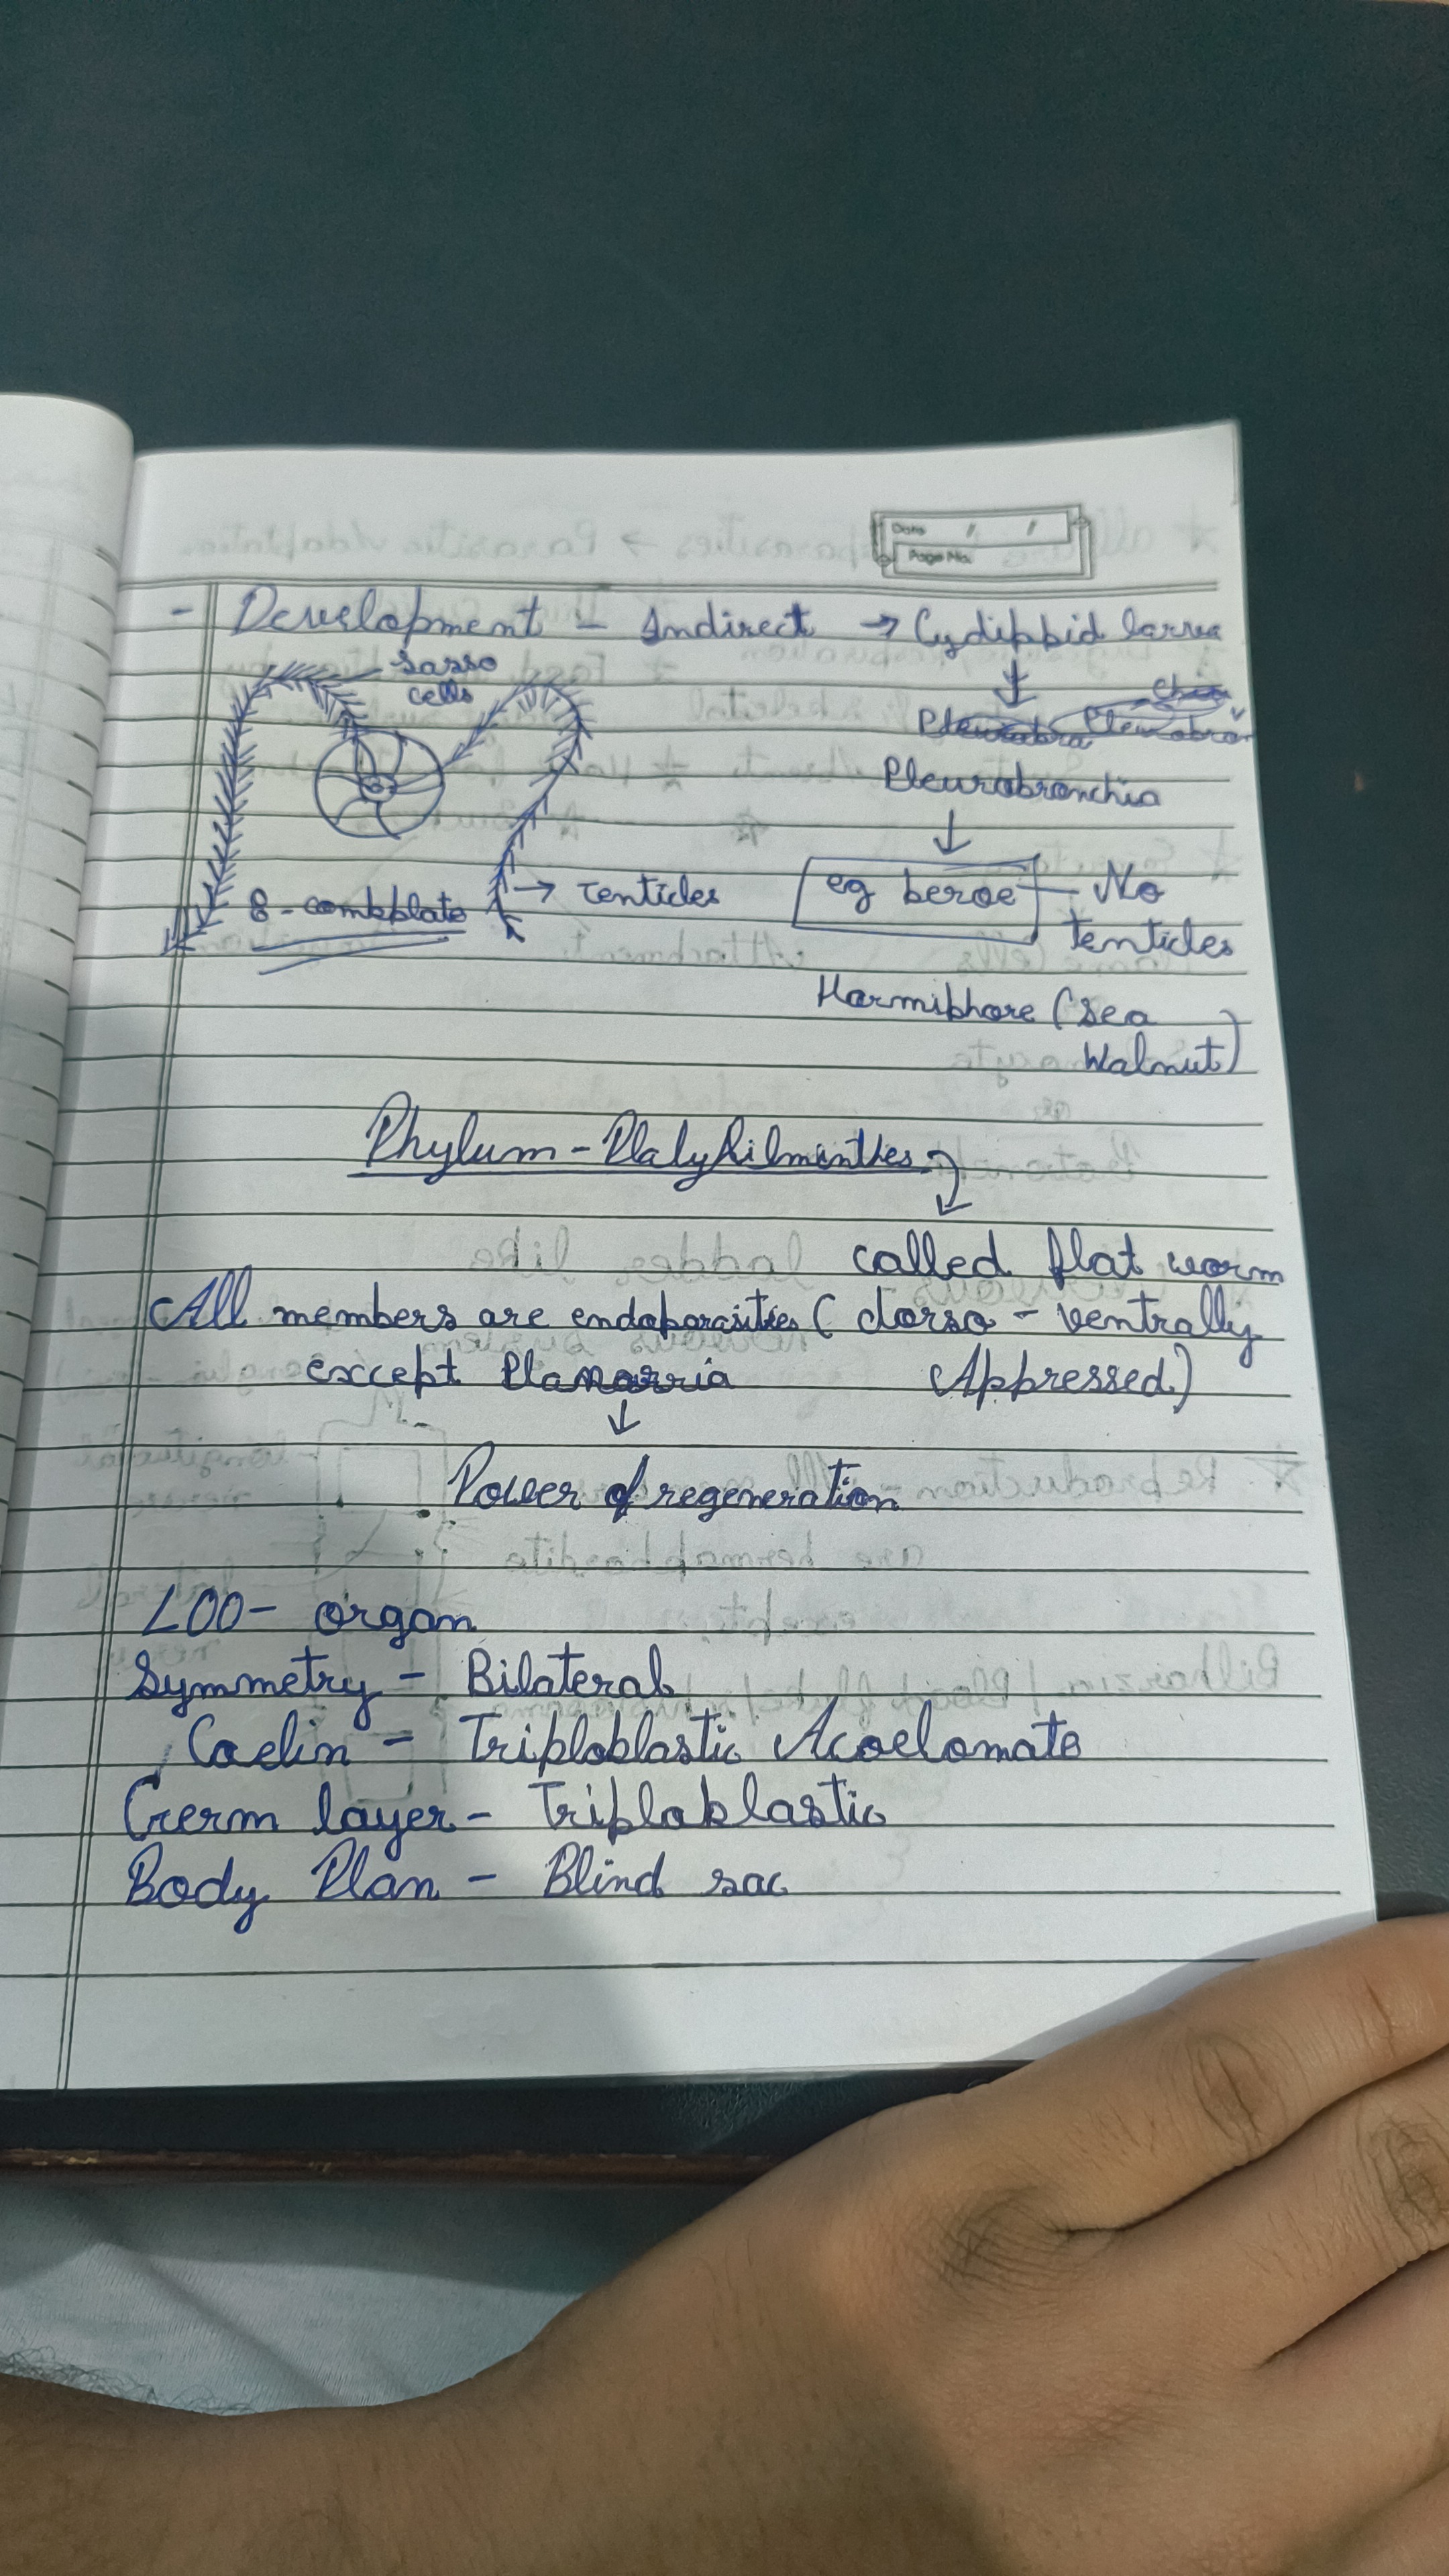 Date / /
Page No.
- Development - Indirect → Cydippid larvea
Lasso
cells
Pleurobronchia
8-combplate → Tenticles
eg beroe — No
tenticles
Harmiphore (sea
Walnut)
Phylum - Platyhilminthes
called flat worm
All members are endoparasities (dorso - ventrally
except Planarria Appressed)
↓
Power of regeneration
LOO- organ
Symmetry - Bilateral
Coelin - Triploblastic Acoelomate
Germ layer - Triploblastic
Body Plan - Blind sac